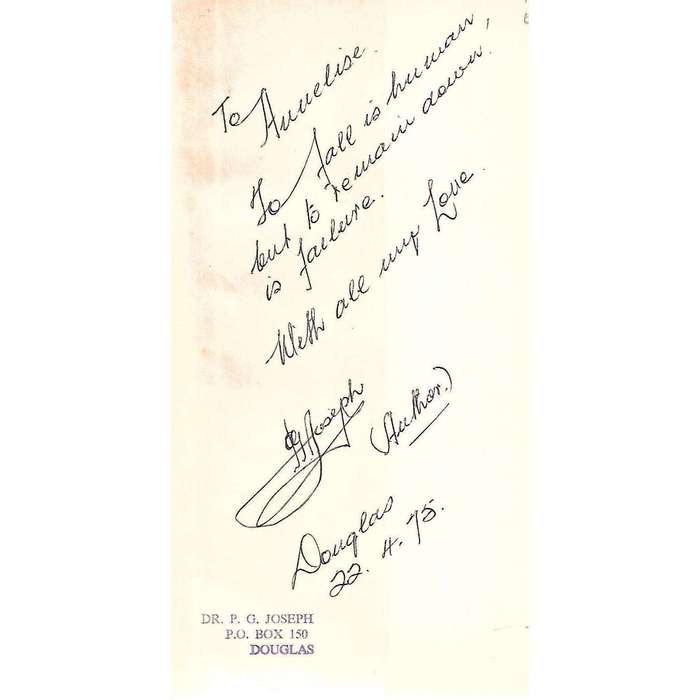 To Annelise.
To fall is human,
but to remain down
is failure.
With all my Love.
PGJoseph
(Author.)
Douglas
22.4.75.
DR. P. G. JOSEPH
P.O. BOX 150
DOUGLAS